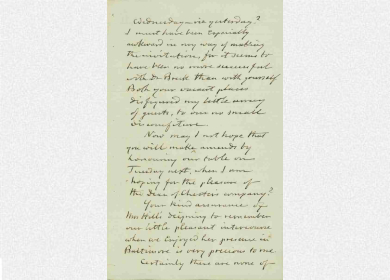 Wednesday via yesterday?
I must have been especially
awkward in my way of making
the invitation, for it seems to
have been no more successful
with Dr Buck than with yourself
Both your vacant places
disfigured my little array
of guests, to our no small
discomfiture.
Now may I not hope that
you will make amends by
honouring our table on
Tuesday next, when I am
hoping for the pleasure of
the Dean of Chester's company?
Your kind assurance of
Mrs Hill's deigning to remember
our little pleasant interviews
when we enjoyed her presence in
Baltimore is very precious to me.
Certainly there are none of